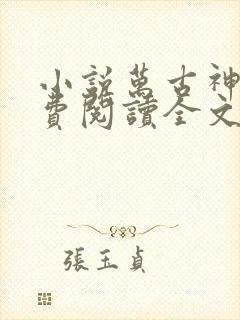 小說萬古神
費閱讀全文
張玉貞